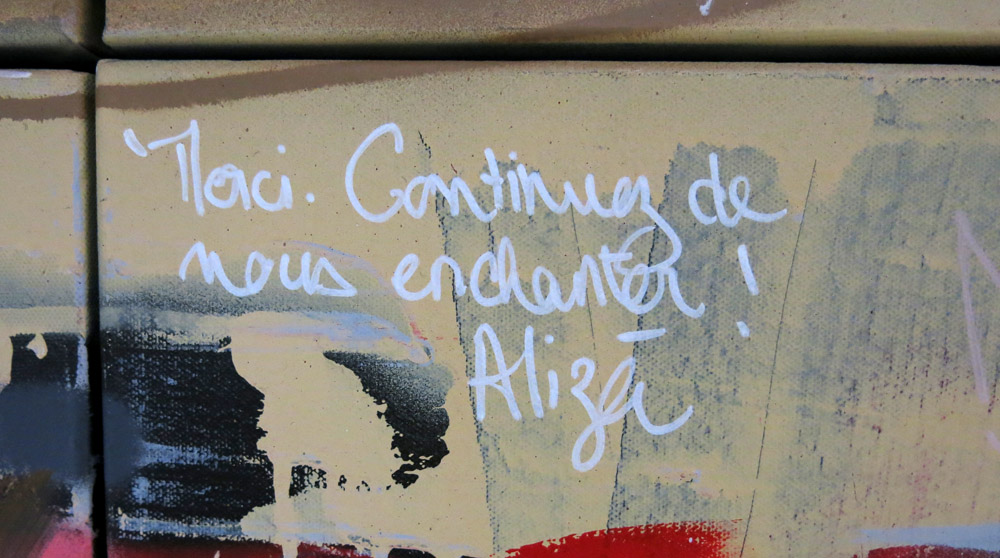 Merci. Continuez de
nous enchanter !
Aliza